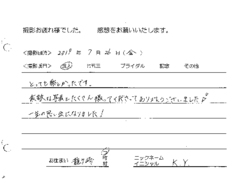 撮影お疲れ様でした。 感想をお願いいたします。
<撮影日> 2018年 7月 26日 (金)
<撮影部門> 成人 七五三 ブライダル 記念 その他
とっても楽しかったです。
お写真たくさん撮ってくださってありがとうございました♪
一生の思い出になりました!
お住まい 市 町 ニックネーム
イニシャル K Y